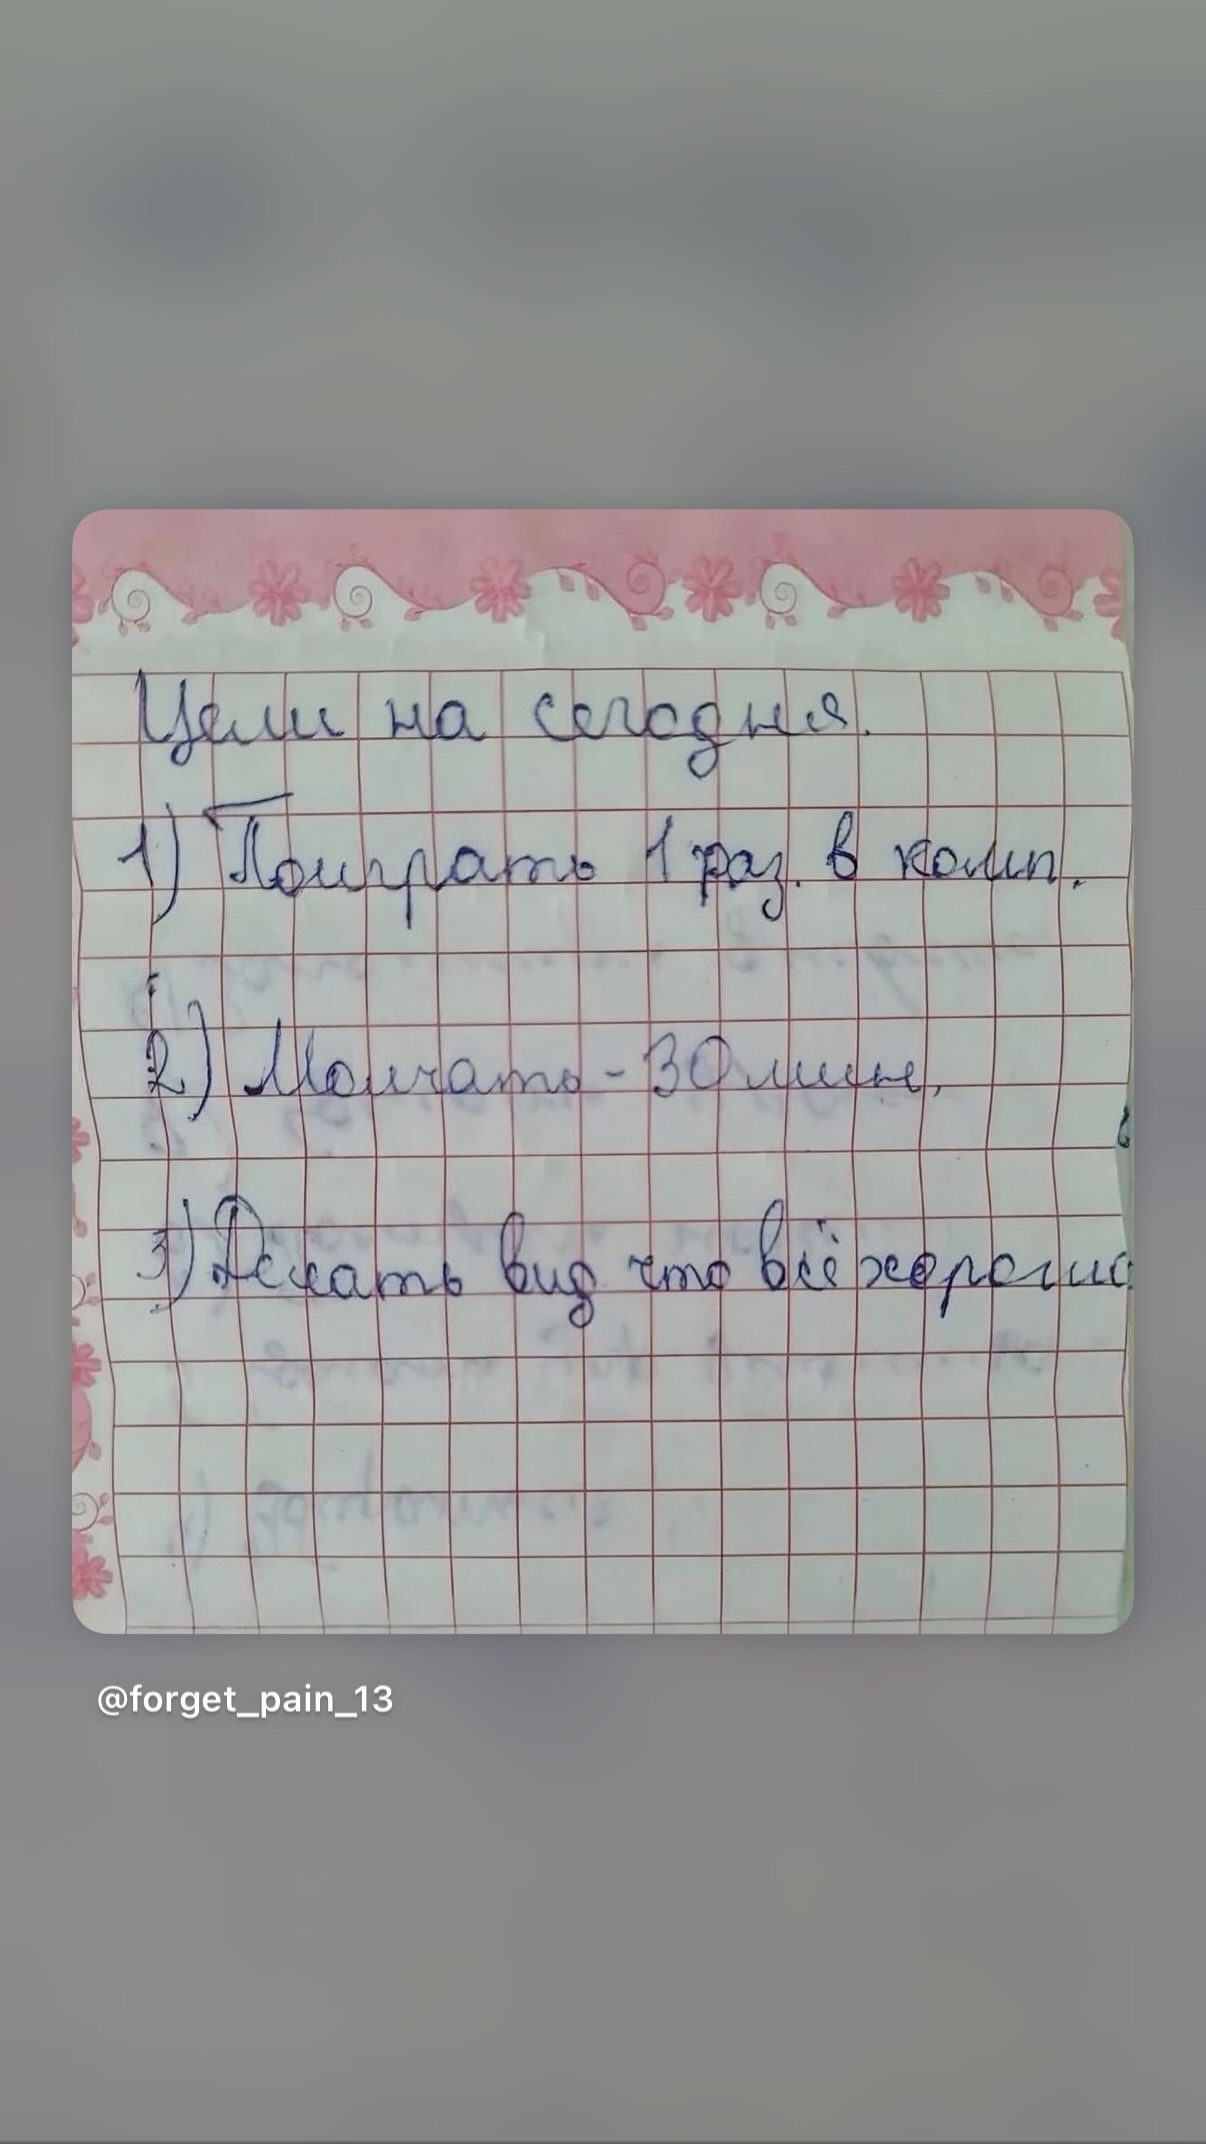 Цели на сегодня.
1) Поиграть 1 раз. в комп.
2) Молчать - 30 мин,
3) Делать вид что всё хорошо
@forget_pain_13